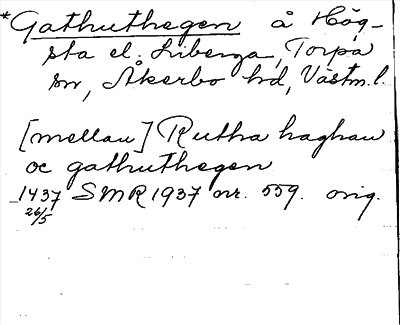 *Gathuthegen å Hög-
sta el. Liberga, Torpa
sn, Åkerbo hd, Västm.l.
[mellan] Rutha haghan
oc gathuthegen
1437 SMR 1937 nr. 559. orig.
26/5